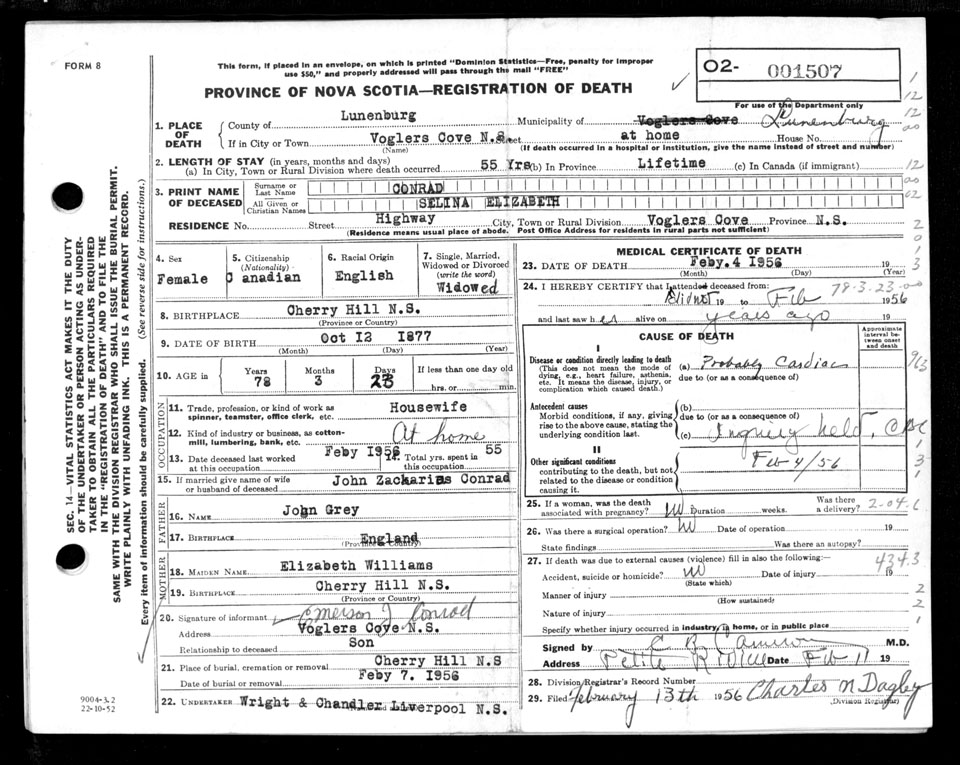 FORM 8
This form, if placed in an envelope, on which is printed "Dominion Statistics—Free, penalty for improper
use $50," and properly addressed will pass through the mail "FREE"
O2- 001507
PROVINCE OF NOVA SCOTIA—REGISTRATION OF DEATH
For use of the Department only
1. PLACE OF DEATH
County of Lunenburg Municipality of Voglers Cove Lunenburg
If in City or Town Voglers Cove N.S. Street at home House No.
(Name) (If death occurred in a hospital or institution, give the name instead of street and number)
2. LENGTH OF STAY (in years, months and days)
(a) In City, Town or Rural Division where death occurred 55 Yrs (b) In Province Lifetime (c) In Canada (if immigrant)
3. PRINT NAME OF DECEASED
Surname or Last Name CONRAD
All Given or Christian Names SELINA ELIZABETH
RESIDENCE No. Street Highway City, Town or Rural Division Voglers Cove Province N.S.
(Residence means usual place of abode. Post Office Address for residents in rural parts not sufficient)
4. Sex Female
5. Citizenship (Nationality) Canadian
6. Racial Origin English
7. Single, Married, Widowed or Divorced (write the word) Widowed
8. BIRTHPLACE Cherry Hill N.S.
(Province or Country)
9. DATE OF BIRTH Oct 12 1877
(Month) (Day) (Year)
10. AGE in Years 78 Months 3 Days 23 If less than one day old hrs. or min.
OCCUPATION
11. Trade, profession, or kind of work as spinner, teamster, office clerk, etc. Housewife
12. Kind of industry or business, as cotton-mill, lumbering, bank, etc. At home
13. Date deceased last worked at this occupation Feby 1956
14. Total yrs. spent in this occupation 55
15. If married give name of wife or husband of deceased John Zackarias Conrad
FATHER
16. NAME John Grey
17. BIRTHPLACE England
(Province or Country)
MOTHER
18. MAIDEN NAME Elizabeth Williams
19. BIRTHPLACE Cherry Hill N.S.
(Province or Country)
20. Signature of informant Emerson J Conrad
Address Voglers Cove N.S.
Relationship to deceased Son
21. Place of burial, cremation or removal Cherry Hill N.S
Date of burial or removal Feby 7. 1956
22. UNDERTAKER Wright & Chandler Liverpool N.S.
MEDICAL CERTIFICATE OF DEATH
23. DATE OF DEATH Feby. 4 1956 19
(Month) (Day) (Year)
24. I HEREBY CERTIFY that I attended deceased from: 78-3-23-00
Did not 19 to Feb 1956
and last saw her alive on years ago 19
CAUSE OF DEATH
Approximate interval between onset and death
I
Disease or condition directly leading to death
(This does not mean the mode of dying, e.g., heart failure, asthenia, etc. It means the disease, injury, or complication which caused death.)
(a) Probably Cardiac
due to (or as a consequence of)
Antecedent causes
Morbid conditions, if any, giving rise to the above cause, stating the underlying condition last.
(b)
due to (or as a consequence of)
(c) Inquiry held
II
Other significant conditions
contributing to the death, but not related to the disease or condition causing it.
Feb 4/56
25. If a woman, was the death associated with pregnancy? Duration weeks. Was there a delivery? 2-04
26. Was there a surgical operation? Date of operation 19
State findings Was there an autopsy?
27. If death was due to external causes (violence) fill in also the following: 434.3
Accident, suicide or homicide? Date of injury 19
(State which)
Manner of injury
(How sustained)
Nature of injury
Specify whether injury occurred in industry, in home, or in public place
Signed by C B Cameron M.D.
Address Petite Riviere Date Feb 11 19
28. Division Registrar's Record Number
29. Filed February 13th 1956 Charles N Dagley
(Division Registrar)
SEC. 14—VITAL STATISTICS ACT MAKES IT THE DUTY
OF THE UNDERTAKER OR PERSON ACTING AS UNDER-
TAKER TO OBTAIN ALL THE PARTICULARS REQUIRED
IN THE "REGISTRATION OF DEATH" AND TO FILE THE
SAME WITH THE DIVISION REGISTRAR WHO SHALL ISSUE THE BURIAL PERMIT.
WRITE PLAINLY WITH UNFADING INK. THIS IS A PERMANENT RECORD.
Every item of information should be carefully supplied. (See reverse side for instructions.)
9004-3.2
22-10-52